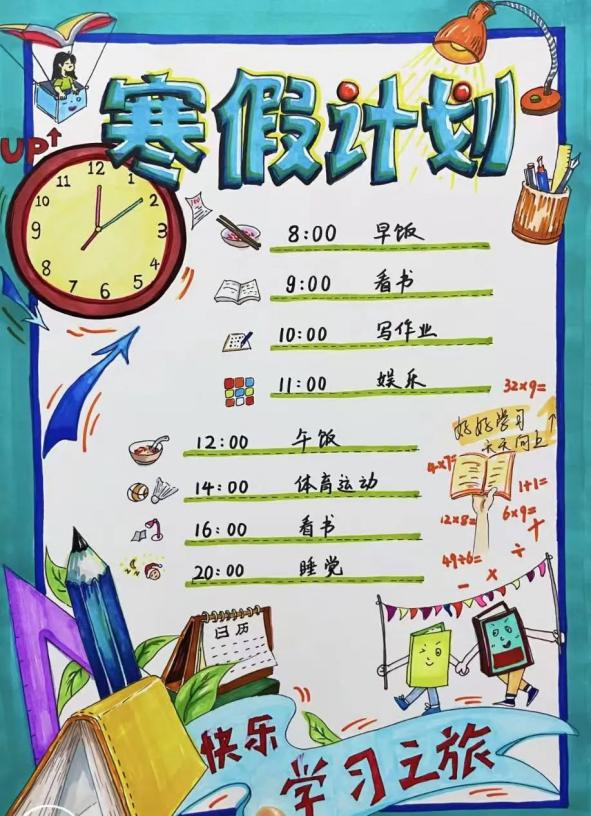 寒假计划
UP
12
11 1
10 2
9 3
8 4
7 6 5
8:00 早饭
9:00 看书
10:00 写作业
11:00 娱乐
12:00 午饭
14:00 体育运动
16:00 看书
20:00 睡觉
32×9=
好好学习
天天向上
4×7=
1+1=
12×8=
6×9=
49÷6=
+
÷
×
−
日历
快乐
学习之旅